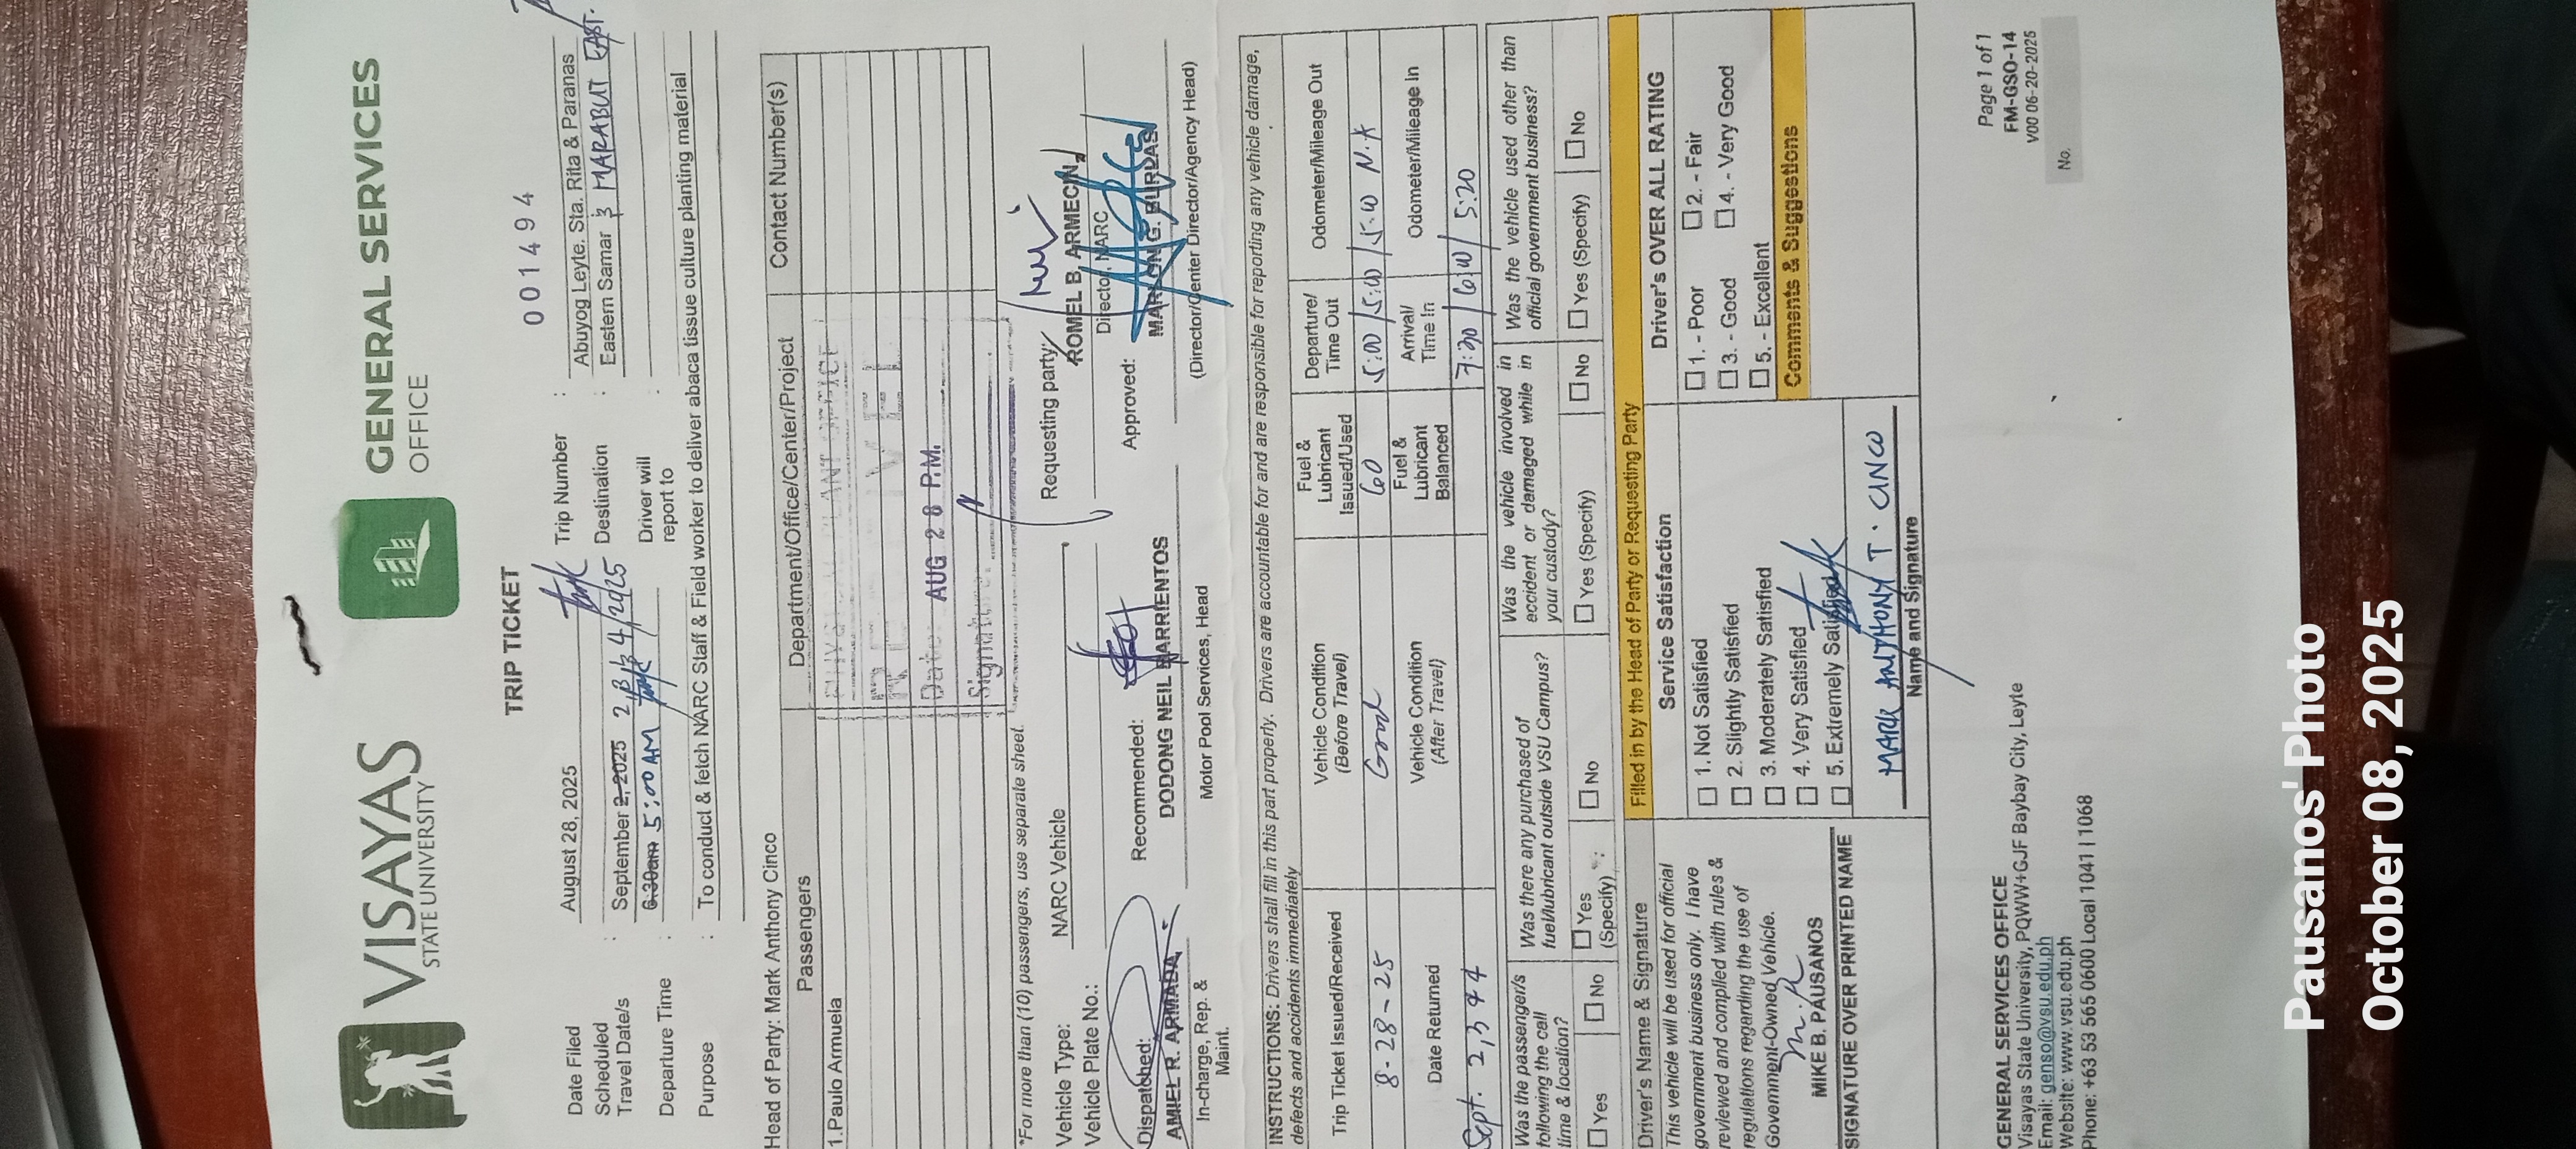 VISAYAS
STATE UNIVERSITY
GENERAL SERVICES
OFFICE
TRIP TICKET
001494
Date Filed : August 28, 2025
Trip Number : Abuyog Leyte, Sta. Rita & Paranas
Scheduled Travel Date/s : September 2, 2025 2, 3 & 4/2025
Destination : Eastern Samar & MARABUT EAST.
Departure Time : 6:30am 5:00 AM
Driver will report to :
Purpose : To conduct & fetch NARC Staff & Field worker to deliver abaca tissue culture planting material
Head of Party: Mark Anthony Cinco
Passengers
Department/Office/Center/Project
Contact Number(s)
1.Paulo Armuela
Date: AUG 28 P.M.
Signature:
*For more than (10) passengers, use separate sheet.
Vehicle Type: NARC Vehicle
Vehicle Plate No.:
Requesting party:
ROMEL B. ARMECIN
Director, NARC
Dispatched:
AMIEL R. ARMADA
In-charge, Rep. & Maint.
Recommended:
DODONG NEIL BARRIENTOS
Motor Pool Services, Head
Approved:
MARLON G. BURLAS
(Director/Center Director/Agency Head)
INSTRUCTIONS: Drivers shall fill in this part properly. Drivers are accountable for and are responsible for reporting any vehicle damage,
defects and accidents immediately
Trip Ticket Issued/Received
Vehicle Condition (Before Travel)
Fuel & Lubricant Issued/Used
Departure/ Time Out
Odometer/Mileage Out
8-28-25
Good
60
5:00 /5:00 /5:00 N.K
Date Returned
Vehicle Condition (After Travel)
Fuel & Lubricant Balanced
Arrival/ Time In
Odometer/Mileage In
Sept. 2, 3 & 4
7:30 / 6:00 / 5:20
Was the passenger/s following the call time & location?
☐ Yes ☐ No
Was there any purchased of fuel/lubricant outside VSU Campus?
☐ Yes (Specify) : ☐ No
Was the vehicle involved in accident or damaged while in your custody?
☐ Yes (Specify) ☐ No
Was the vehicle used other than official government business?
☐ Yes (Specify) ☐ No
Driver's Name & Signature
This vehicle will be used for official
government business only. I have
reviewed and complied with rules &
regulations regarding the use of
Government-Owned Vehicle.
MIKE B. PAUSANOS
SIGNATURE OVER PRINTED NAME
Filled in by the Head of Party or Requesting Party
Service Satisfaction
☐ 1. Not Satisfied
☐ 2. Slightly Satisfied
☐ 3. Moderately Satisfied
☐ 4. Very Satisfied
☐ 5. Extremely Satisfied
MARK ANTHONY T. CINCO
Name and Signature
Driver's OVER ALL RATING
☐ 1. - Poor ☐ 2. - Fair
☐ 3. - Good ☐ 4. - Very Good
☐ 5. - Excellent
Comments & Suggestions
GENERAL SERVICES OFFICE
Visayas State University, PQWW+GJF Baybay City, Leyte
Email: genso@vsu.edu.ph
Website: www.vsu.edu.ph
Phone: +63 53 565 0600 Local 1041 | 1068
Page 1 of 1
FM-GSO-14
V00 06-20-2025
No.
Pausanos' Photo
October 08, 2025